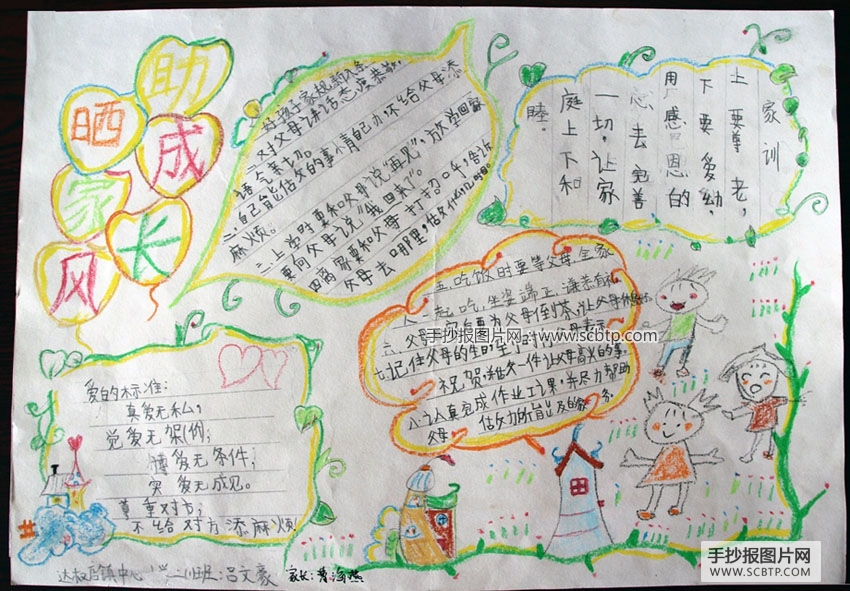 手抄报图片网
WWW.SCBTP.COM
晒
助
家
成
风
长
好孩子家规
一对父母讲话态度恭敬,
语气亲切。
二:自己能做的事情自己办,不给父母添
麻烦。
三:上学时要和父母说“再见”,放学回家
要向父母说“我回来了”。
四离家要和父母打招呼,告诉
父母去哪里,
家训
上要尊老,
下要爱幼,
用感恩的
心去完善
一切,让家
庭上下和
睦。
五吃饭时要等父母,全家
人一起吃,坐姿端正,谦恭有礼
六、父母
为父母倒茶,让父母休息
手抄报图片网 www.scbtp.com
七:记住父母的生日,
祝贺,和做一件让父母高兴的事。
八:认真完成作业功课,并尽力帮助
父母
做力所能及的家务。
爱的标准:
真爱无私,
觉爱无架例;
睡爱无条件;
实爱无成见。
尊重对方;
不给对方添麻烦
达权店镇中心
二班:吕文豪
家长:
手抄报图片网
WWW.SCBTP.COM